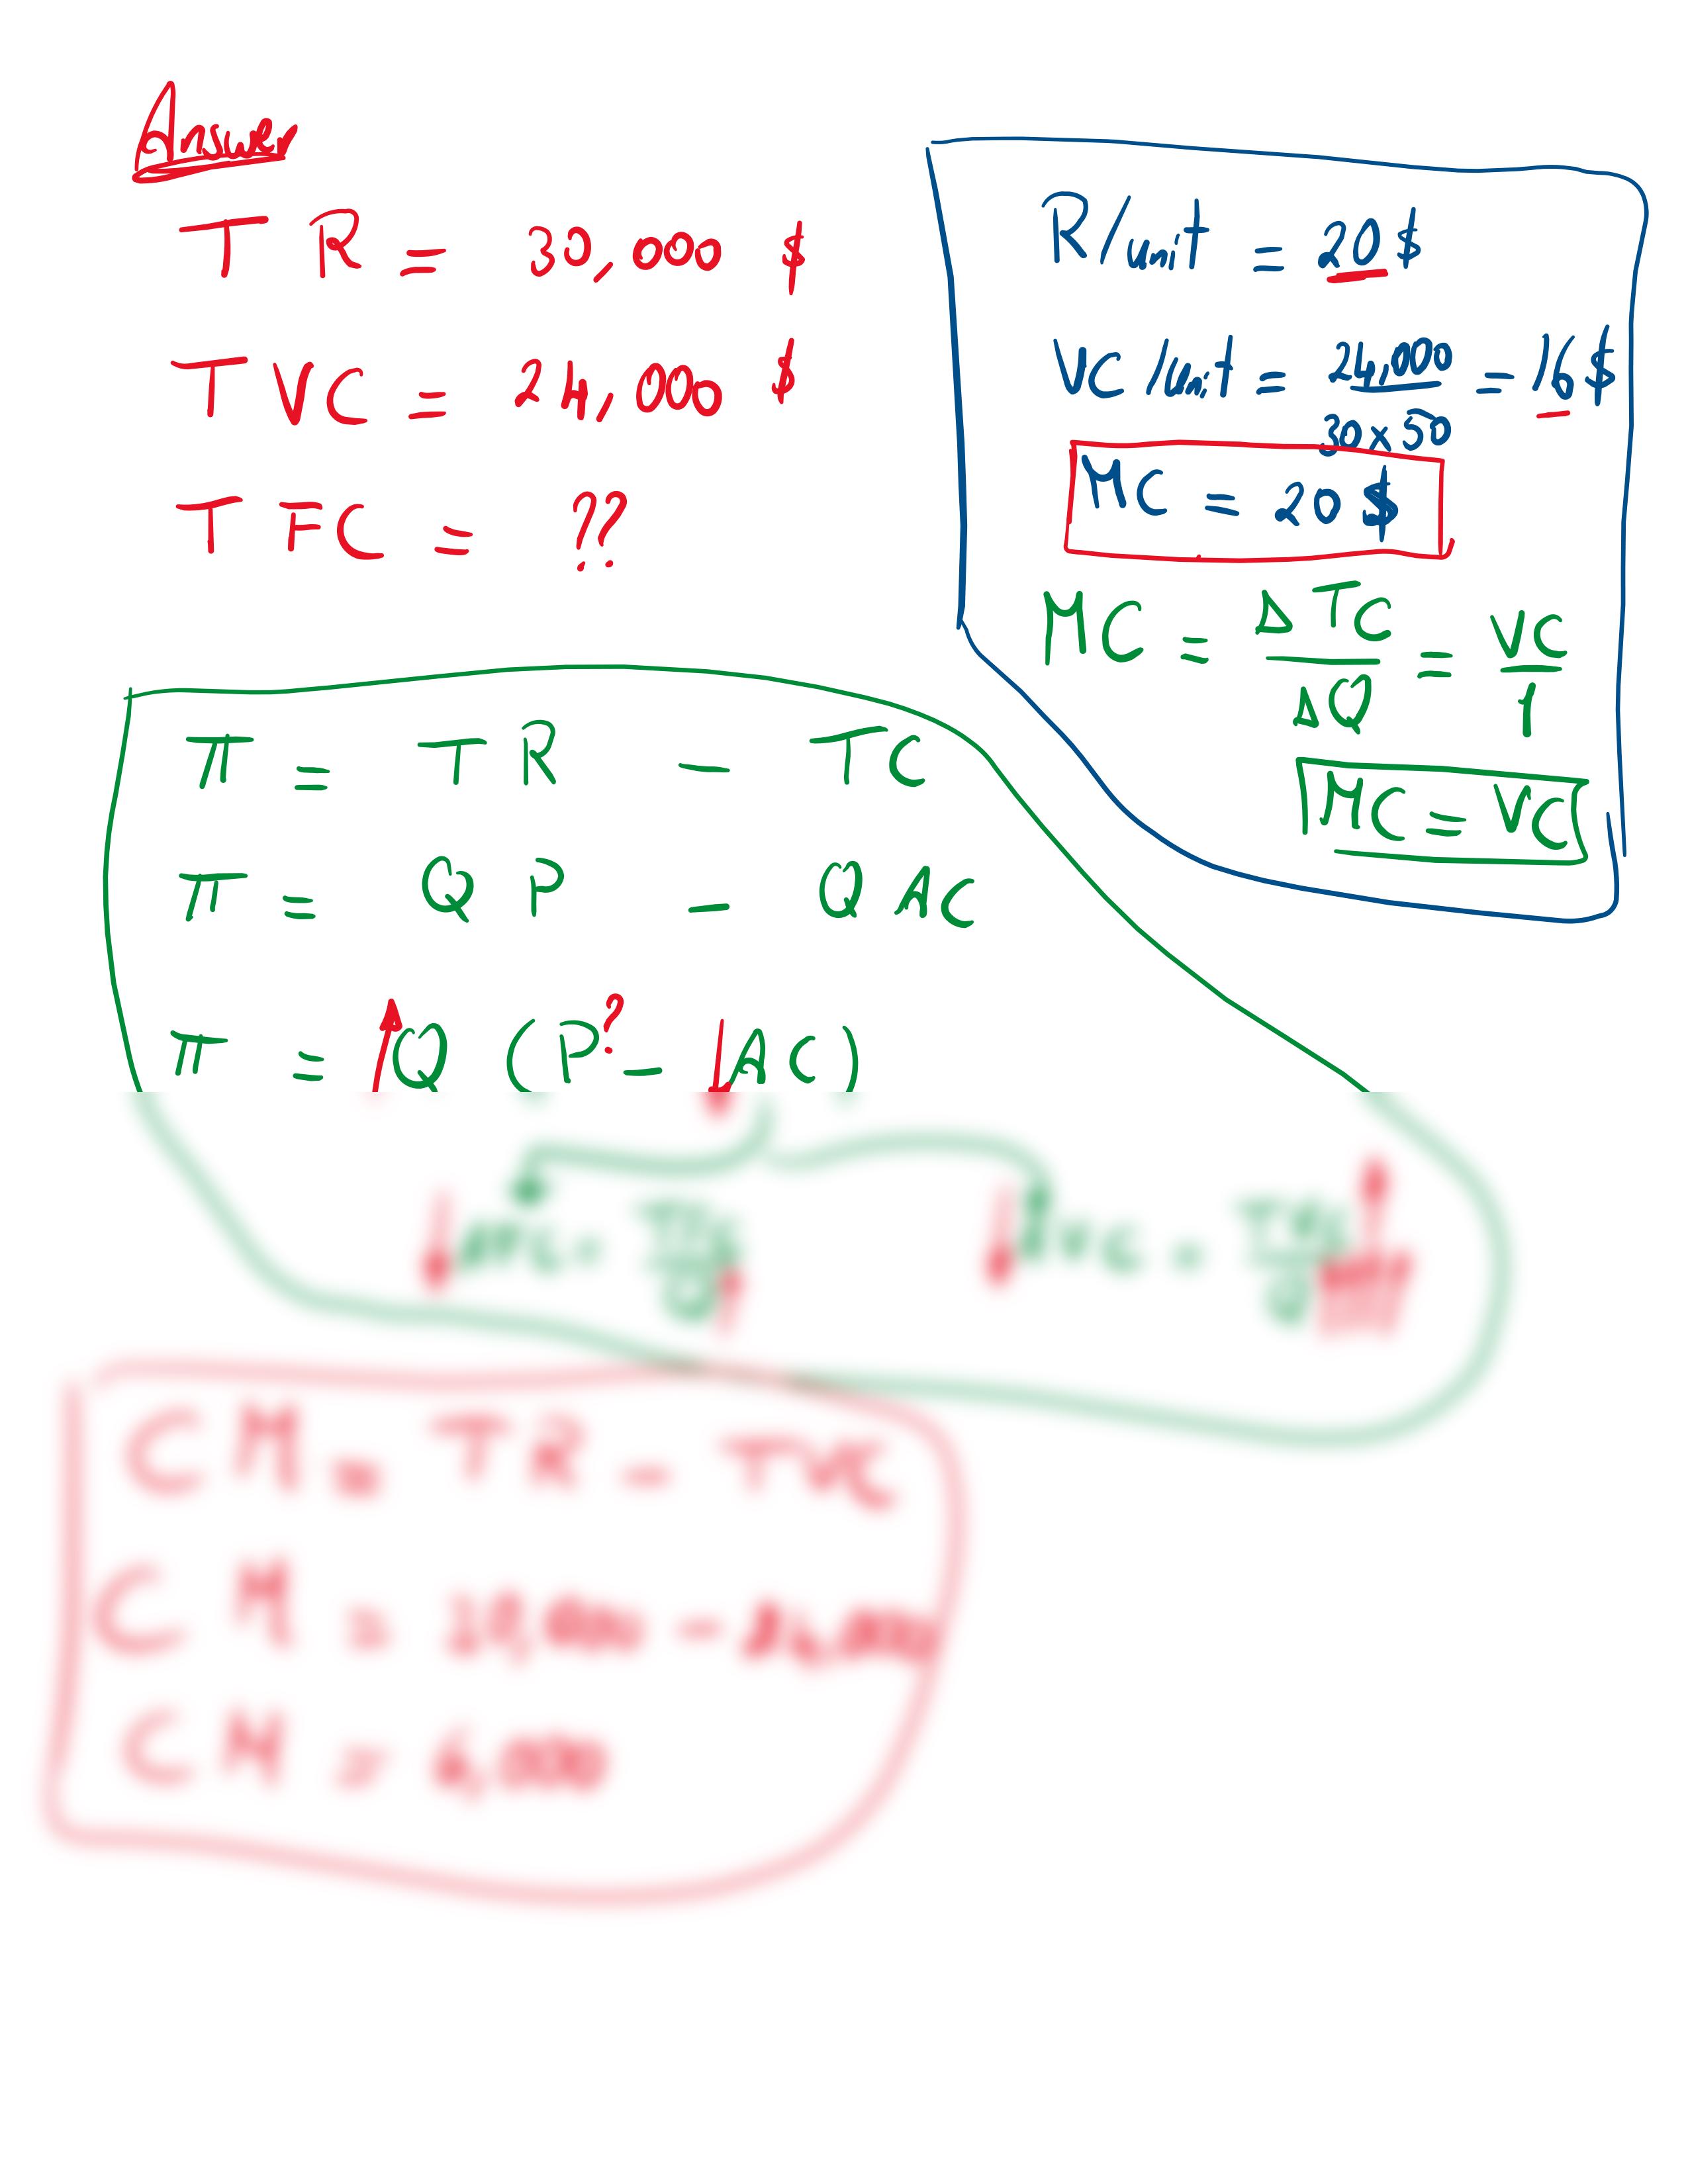 Answer
TR = 30,000 $
TVC = 24,000 $
TFC = ??
R/unit = 20$
VC/unit = 24,000 / 30x50 = 16$
MC = 20$
MC = ΔTC / ΔQ = VC / 1
MC = VC
π = TR - TC
π = QP - QAC
π = ↑Q (P? - ↓AC)
CM = TR - TVC
CM =
CM = 6,000